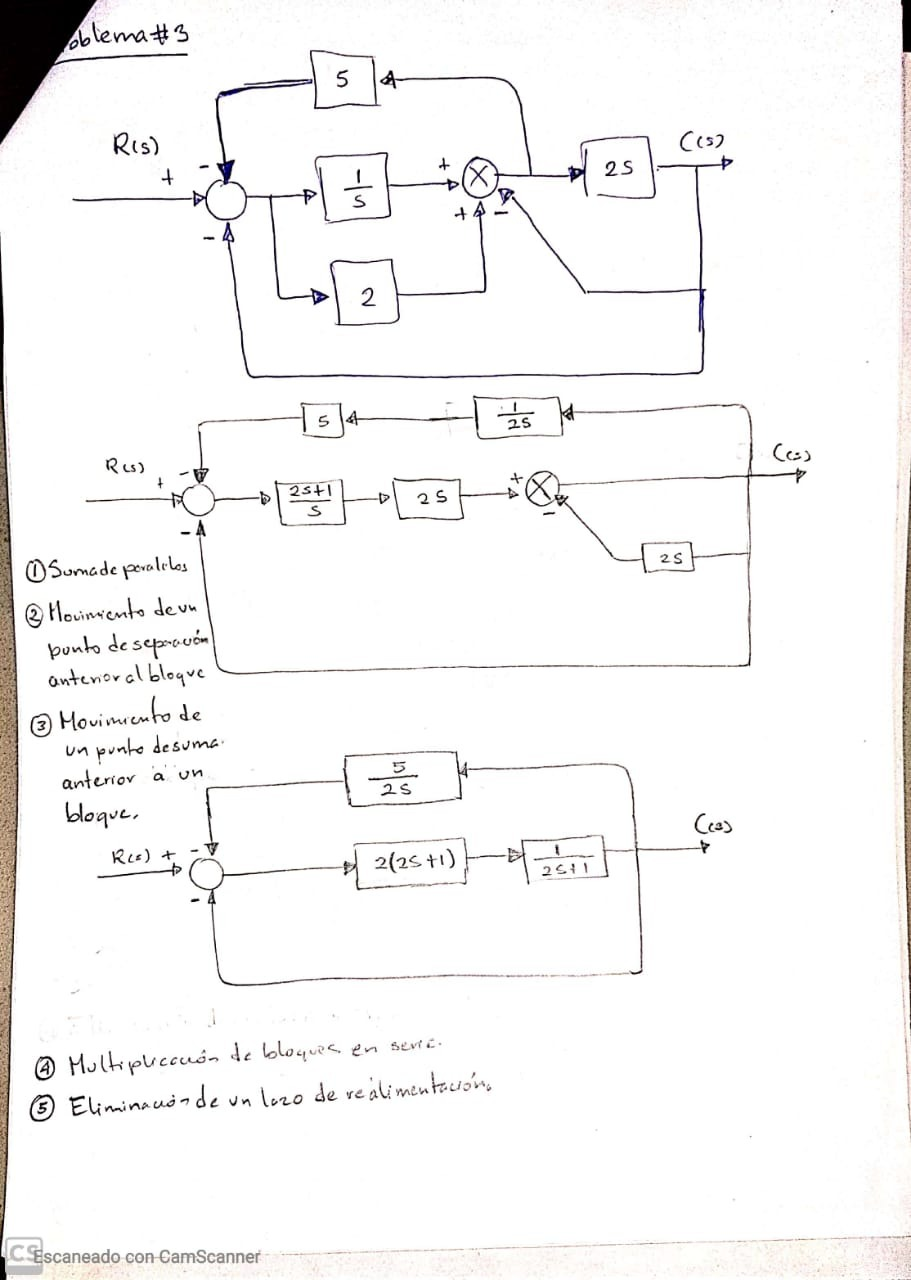 oblema #3
5
R(s)
C(s)
+
-
1/s
+
2s
+
-
-
2
5
1/2s
R(s)
C(s)
+
-
2s+1/s
2s
+
-
-
2s
① Suma de paralelos
② Movimiento de un
punto de separación
anterior al bloque
③ Movimiento de
un punto de suma
anterior a un
bloque.
5/2s
C(s)
R(s) +
-
2(2s+1)
1/2s+1
-
④ Multiplicación de bloques en serie.
⑤ Eliminación de un lazo de realimentación.
CS Escaneado con CamScanner